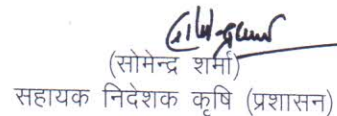 (सोमेन्द्र शर्मा)
सहायक निदेशक कृषि (प्रशासन)